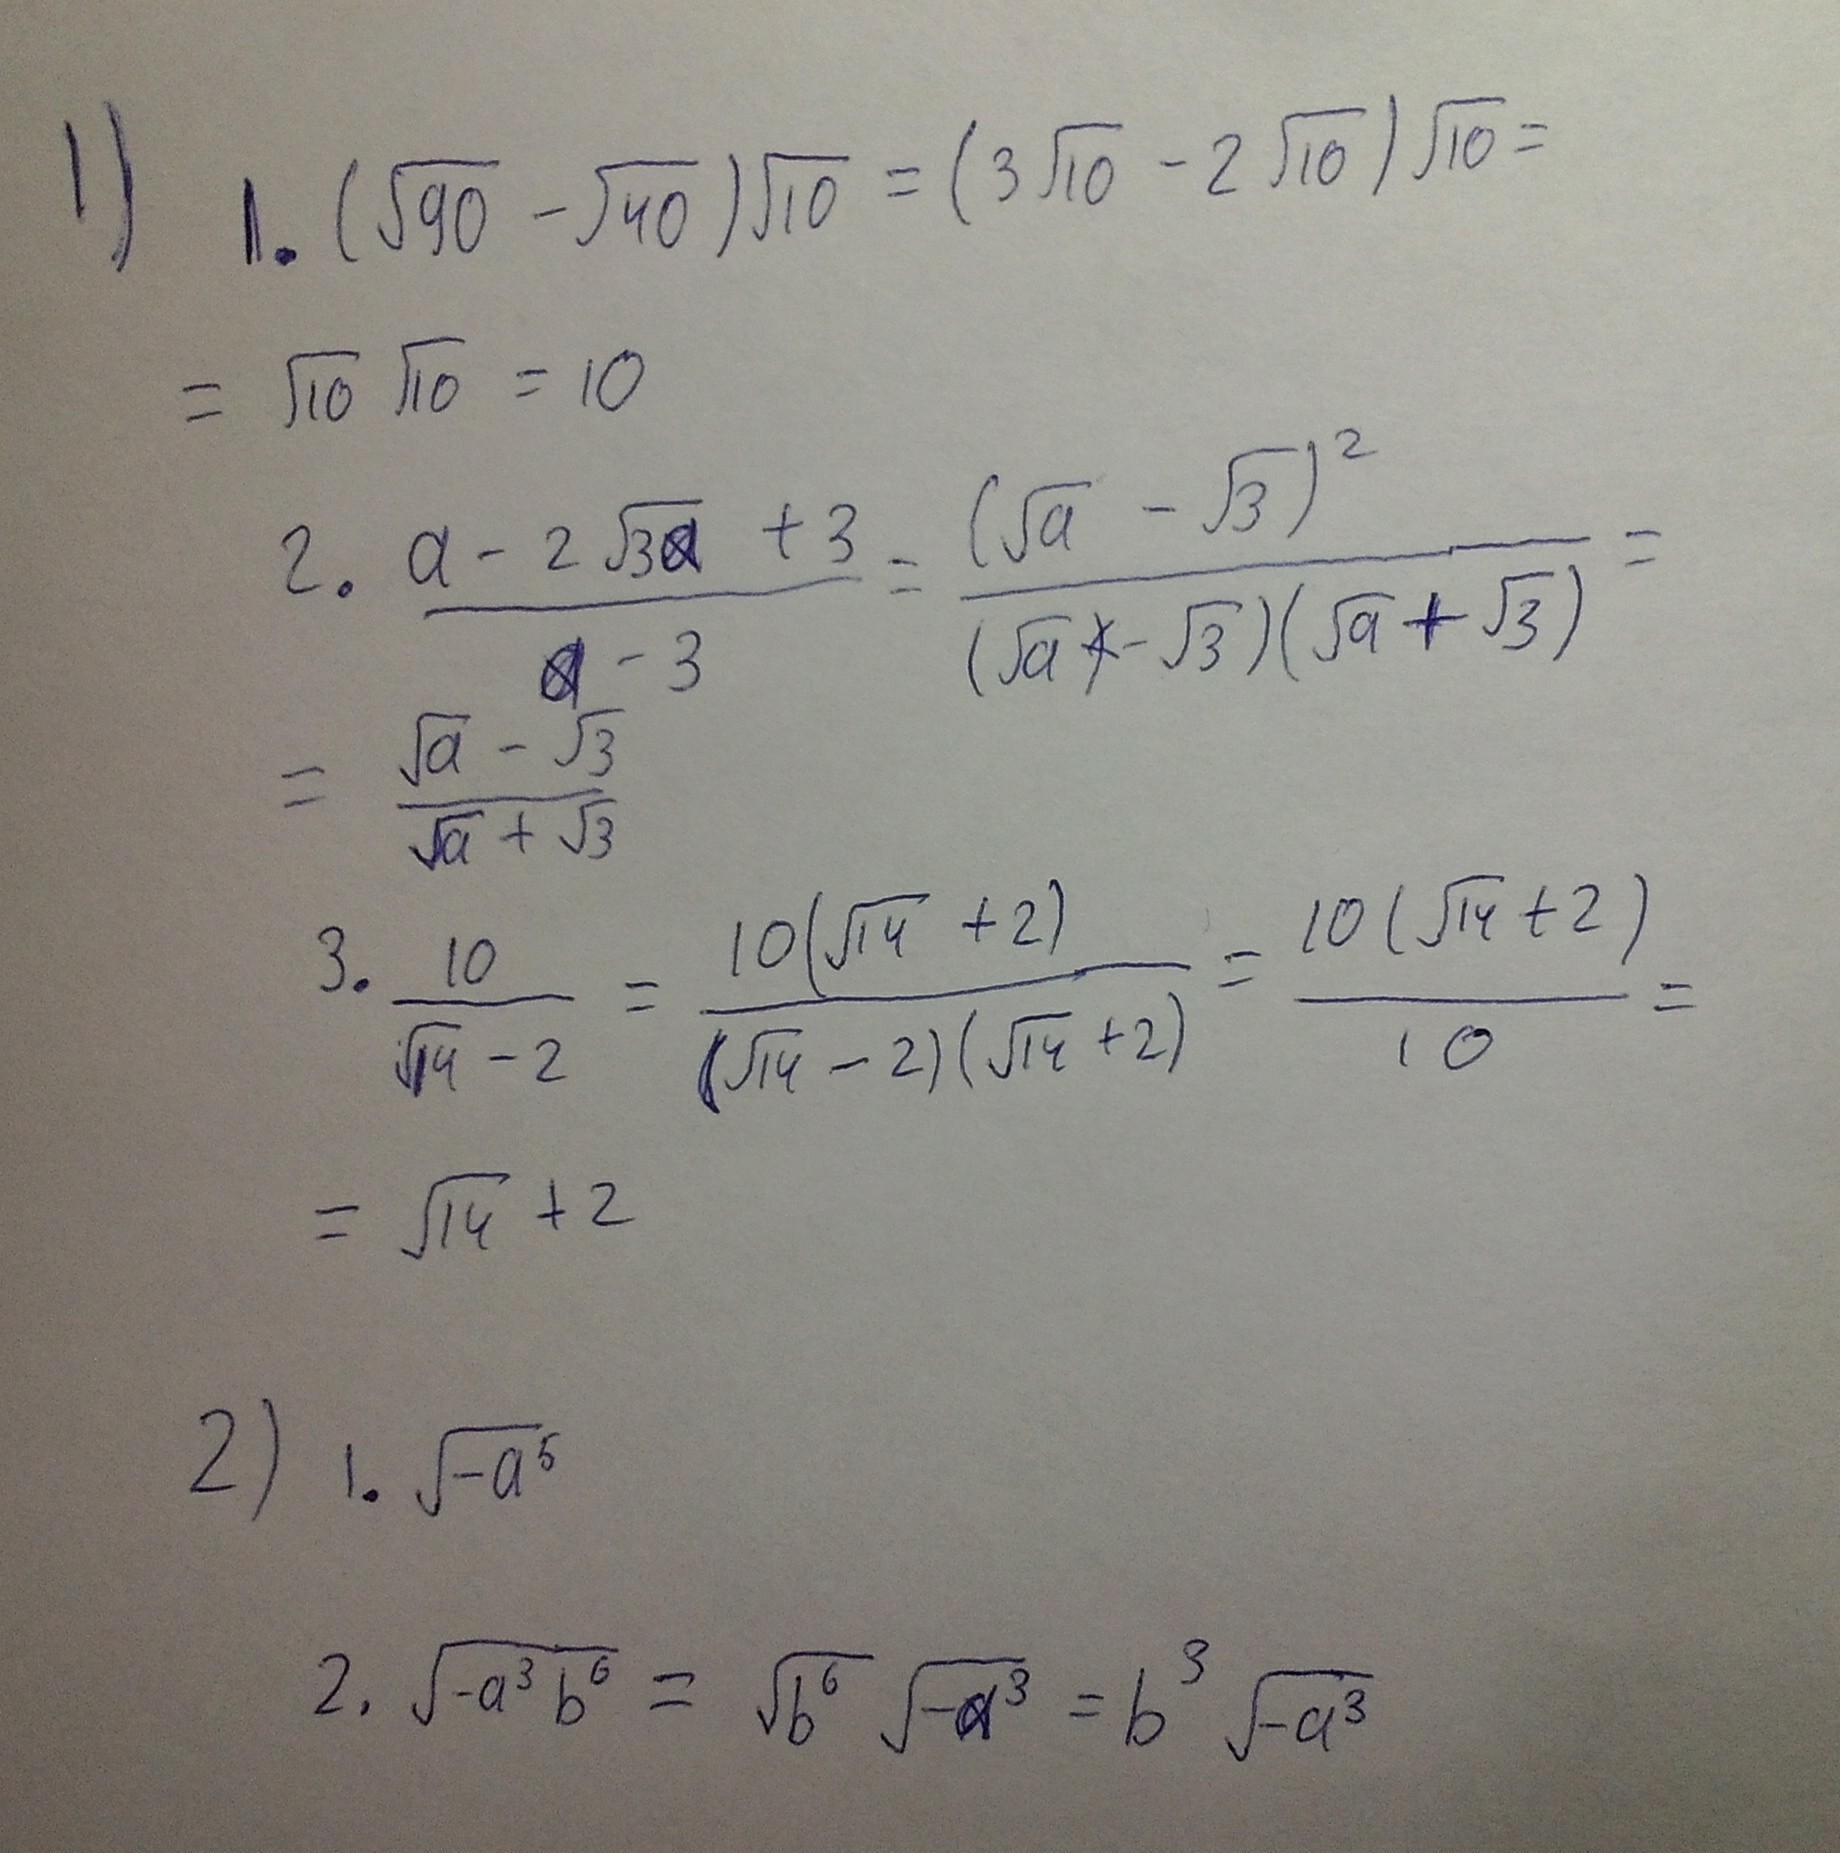 1) 1. (√90 - √40)√10 = (3√10 - 2√10)√10 =
= √10 √10 = 10
2. (a - 2√3a + 3)/(a - 3) = (√a - √3)²/((√a - √3)(√a + √3)) =
= (√a - √3)/(√a + √3)
3. 10/(√14 - 2) = 10(√14 + 2)/((√14 - 2)(√14 + 2)) = 10(√14 + 2)/10 =
= √14 + 2
2) 1. √-a⁵
2. √-a³b⁶ = √b⁶ √-a³ = b³ √-a³